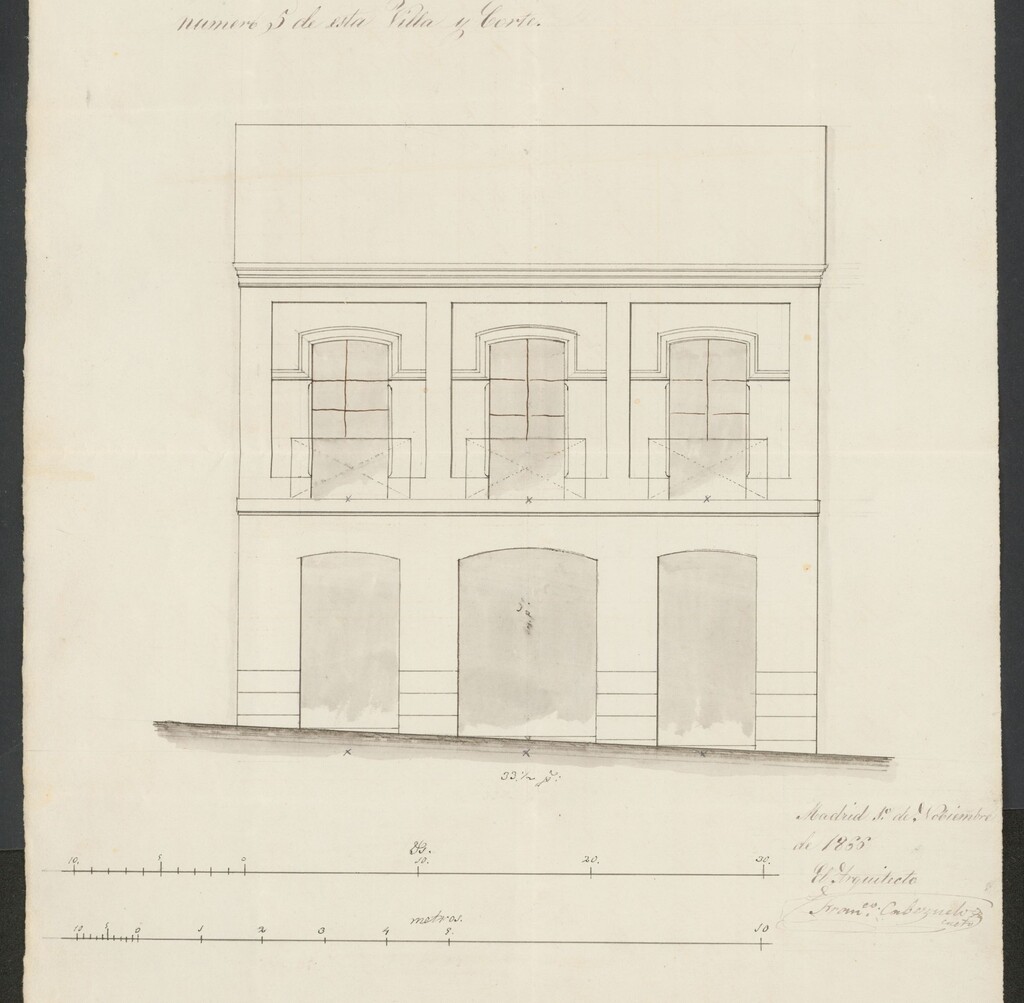 numero 5 de esta Villa y Corte.
33.½ p.s
10. 5 0 10. 20. 30.
metros.
10 5 0 1 2 3 4 5. 10
Madrid 1º. de Noviembre
de 1866
El Arquitecto
Fran.co Cabezuelo